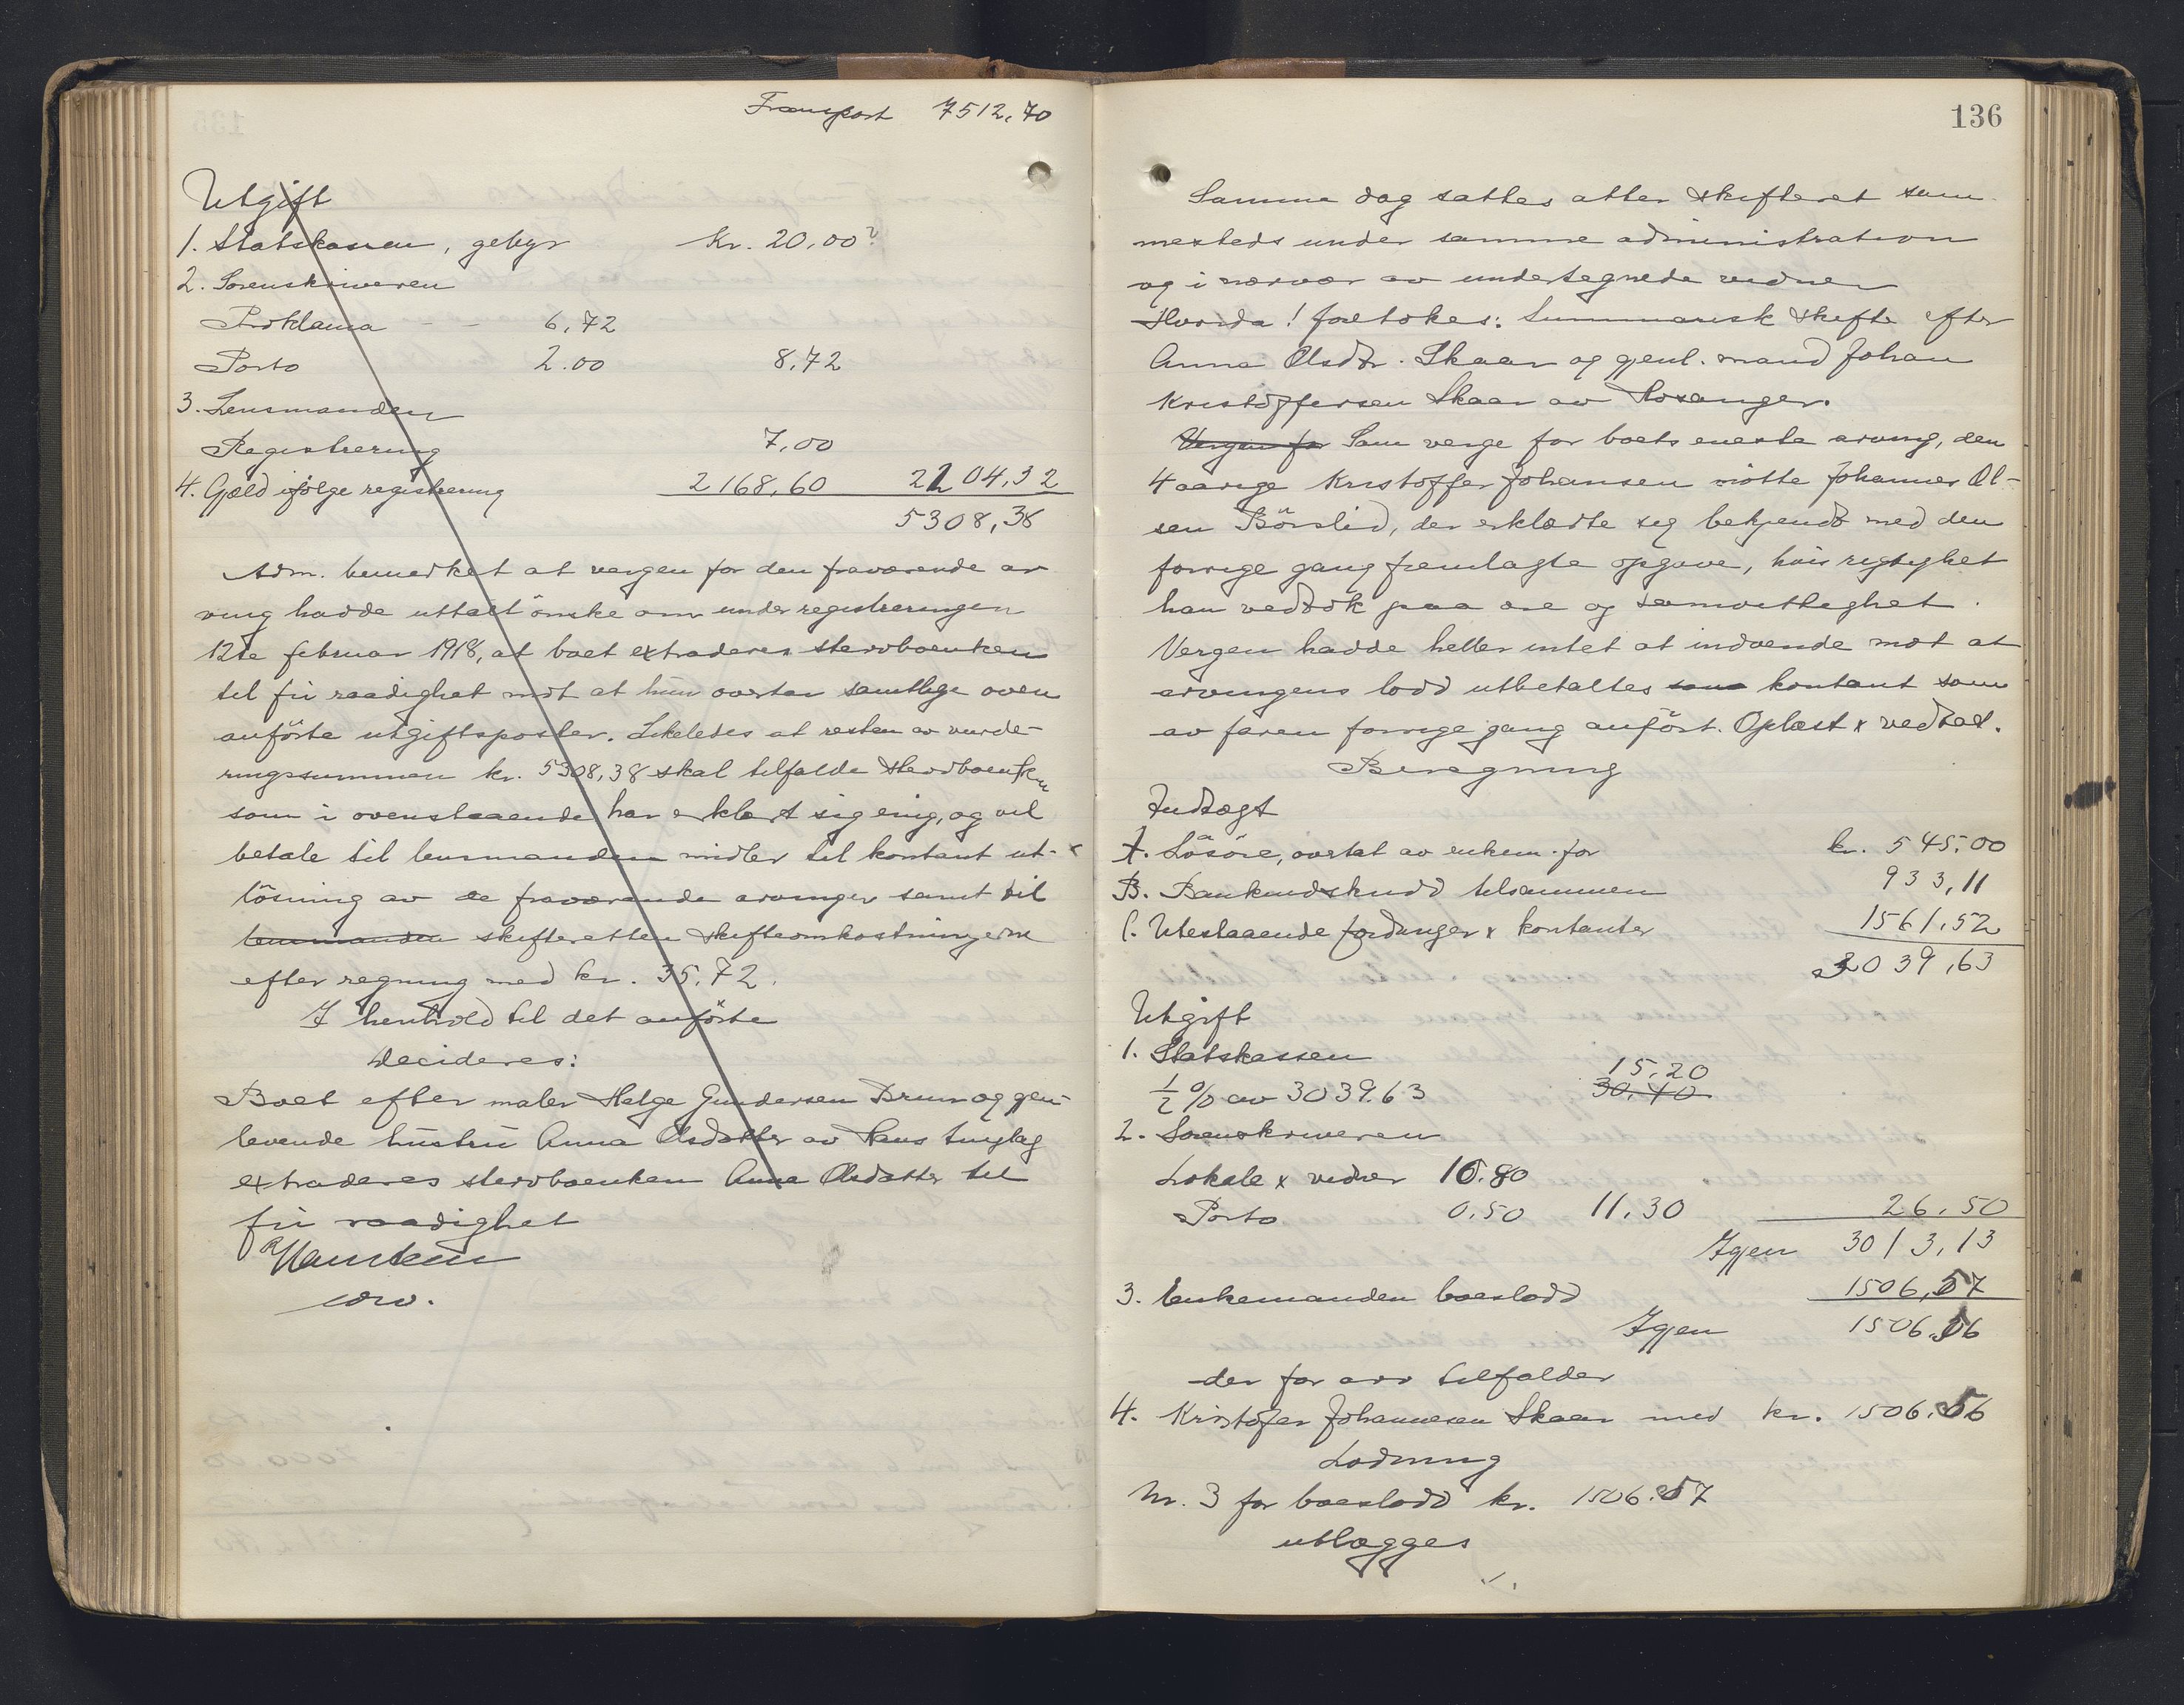 Transport 7512,70
Utgift
1. Statskassen, gebyr Kr. 20,00
2. Sorenskriveren
Proklama - - 6,72
Porto 2.00 8,72
3. Lensmanden
Registrering 7,00
4. Gjæld ifölge registrering 2168,60 2204,32
5308,38
Adm. bemerket at vergen for den fraværende ar
ving hadde uttalt önske om under registreringen
12te februar 1918, at boet extraderes stervboenken
til fri raadighet mot at hun overtar samtlige oven
anförte utgiftsposter. Likeledes at resten av vurde-
ringssummen kr. 5308,38 skal tilfalde stervboenken
som i ovenstaaende har erklært sig enig, og vil
betale til lensmanden midler til kontant ut-
lösning av de fraværende arvinger samt til
lensmanden skifteretten skifteomkostningerne
efter regning med kr. 35.72.
I henhold til det anförte
Decideres:
Boet efter maler Helge Gundersen Brun og gjen-
levende hustru Anna Olsdatter av Haus tinglag
extraderes stervboenken Anna Olsdatter til
fri raadighet
136
Samme dag sattes atter skifteret sam-
mesteds under samme administration
og i nærvær av undertegnede vidner
Hvorda! foretokes: Summarisk skifte efter
Anna Olsdtr. Skaar og gjenl. mand Johan
Kristoffersen Skaar av Hosanger.
Vergen for Som verge for boets eneste arving, den
4 aarige Kristoffer Johansen mötte Johannes Ol-
sen Börslid, der erklærte sig bekjendt med den
forrige gang fremlagte opgave, hvis rigtighet
han vedtok paa ære og samvittighet.
Vergen hadde heller intet at indvende mot at
arvingens lodd utbetaltes som kontant som
av faren forrige gang anfört. Oplæst x vedtat.
Beregning
Indtægt
A. Lösöre, overtat av enkem. for kr. 545.00
B. Bankindskudd tilsammen 933,11
C. Utestaaende fordringer x kontanter 1561,52
3039,63
Utgift
1. Statskassen 15.20
1/2 % av 3039.63 30,40
2. Sorenskriveren
Lokale x vidner 10.80
Porto 0.50 11.30 26.50
Igjen 3013,13
3. Enkemanden boeslodd 1506,57
Igjen 1506.56
der for arv tilfalder
4. Kristofer Johannesen Skaar med kr. 1506.56
Lodning
Nr. 3 for boeslodd kr. 1506.57
utlægges